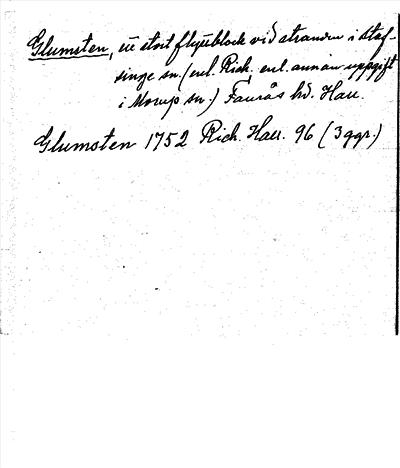 Glumsten, ett stort flyttblock vid stranden i Staf-
singe sn. (enl. Rich. enl. annan uppgift
i Morups sn.) Faurås hd. Hall.
Glumsten 1752 Rich. Hall. 96 (3 ggr.)